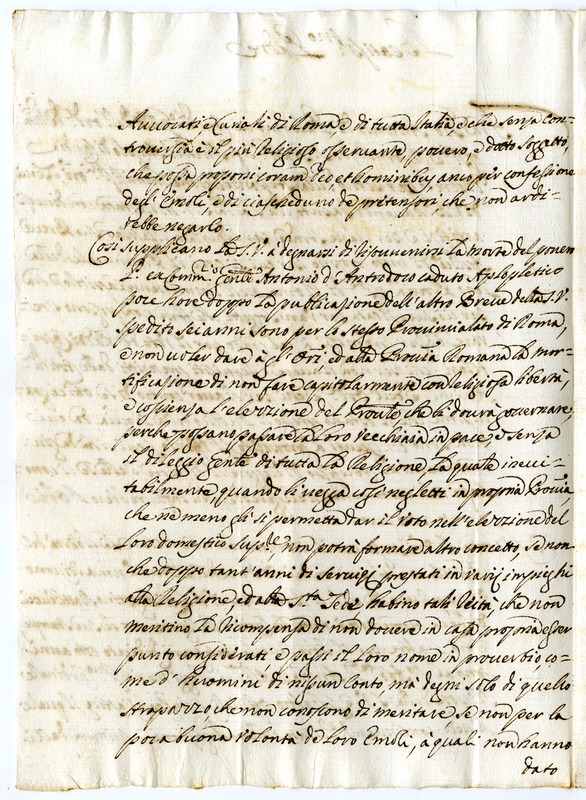 Avvocati, e Curiali di Roma e di tutta Italia, e che senza con-
troversia è il più Religioso osservante, povero, e dotto soggetto,
che possa proporsi coram Deo, et hominibus, anco per confessione
degl'Emoli, e di ciascheduno de pretensori, che non ardi-
rebbe negarlo.
Così supplicano La S.V. a degnarsi di sovvenirsi La morte del poner
P. ex Comm.rio Gen'le Antonio d'Antrodoco caduto Apopletico
poce hore doppo La publicazione dell'altro Breve della S.V.
spedito sei anni sono per lo stesso Provinvialato di Roma,
e non voler dare à gl'Ori, ed alla Prov'a Romana La mor-
tificazione di non fare capitolarmente con Religiosa libertà,
e coscienza l'elezzione del Pron'le che li dovrà governare;
perche possano passare La Loro Vecchiaia in pace, e senza
il dileggio gen'le di tutta La Religione La quale inevi-
tabilmente quando li vegga così negletti in propria Prov'a
che ne meno gli si permetta dar il voto nell'elezzione del
Loro domestico Sup.re, non potrà formare altro concetto, se non
che doppo tant'anni di servigi prestati in varij impieghi
alla Religione, ed alla S.ta Sede habino tali Reità, che non
meritino La Ricompensa di non dovere in casa propria esser
punto considerati e passi il Loro nome in proverbio co-
me d'huomini di nissun Conto, mà degni solo di quello
strapazzo, che non conoscono di meritare se non per la
poca buona Volontà de Loro Emoli, à quali non hanno
dato